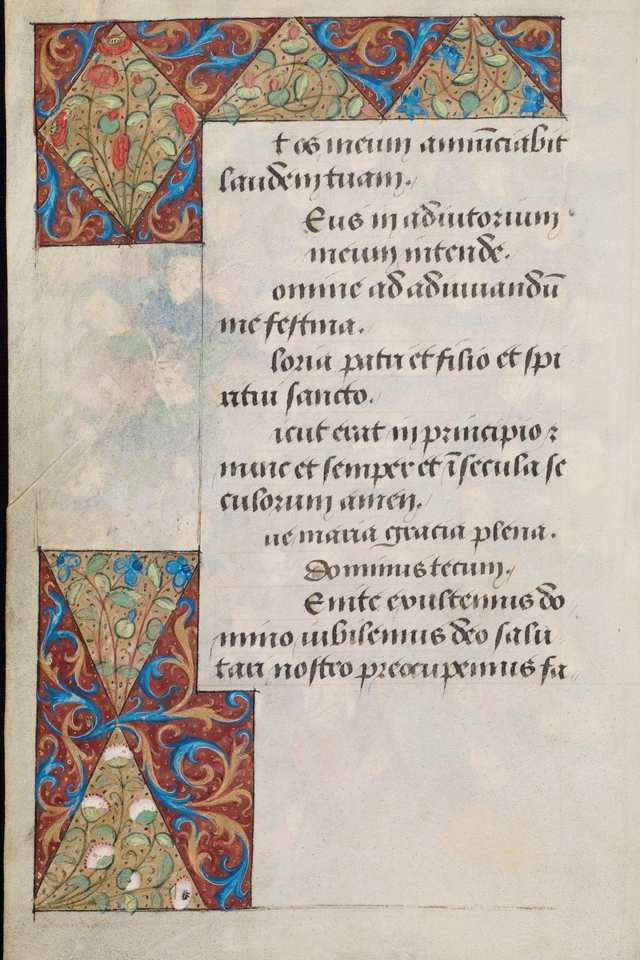 t os meum annūciabit
laudem tuam.
Eus in adiutorium
meum intende.
omine ad adiuuandū
me festina.
loria patri et filio et spi
ritui sancto.
icut erat in principio ⁊
nunc et semper et ī secula se
culorum amen.
ue maria gracia plena.
Dominus tecum.
Enite exultemus do
mino iubilemus deo salu
tari nostro preocupemus fa